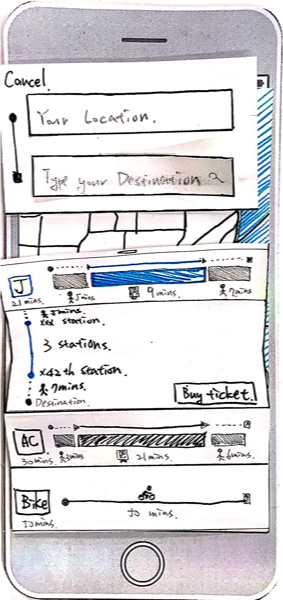 Cancel.
Your Location.
Type your Destination
J
21 mins.
5 mins
9 mins.
7 mins
5 mins.
xxx station.
3 stations.
x42th station.
7 mins.
Destination.
Buy ticket.
AC
30 mins.
21 mins.
6 mins.
Bike
50 mins.
50 mins.